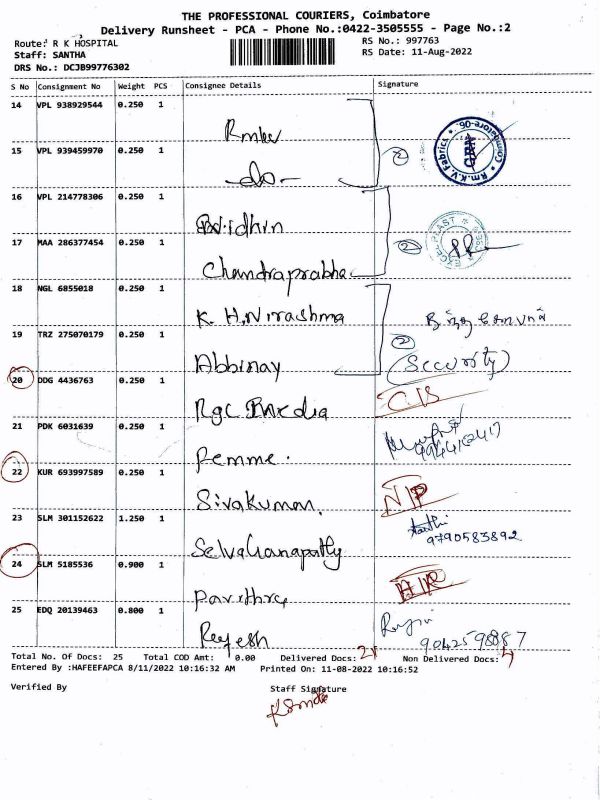 THE PROFESSIONAL COURIERS, Coimbatore
Delivery Runsheet - PCA - Phone No.:0422-3505555 - Page No.:2
Route: R K HOSPITAL
RS No.: 997763
Staff: SANTHA
RS Date: 11-Aug-2022
DRS No.: DCJB99776302
S No Consignment No Weight PCS Consignee Details Signature
14 VPL 938929544 0.250 1
15 VPL 939459970 0.250 1 -do- 2
Rm.K.V Fabrics Coimbatore-06.
16 VPL 214778306 0.250 1
17 MAA 286377454 0.250 1 Chandraprabha 2
18 NGL 6855018 0.250 1 K. H. Nirashma
19 TRZ 275070179 0.250 1 Abhinay 2 (Security)
20 DDG 4436763 0.250 1
21 PDK 6031639 0.250 1 Femme.
22 KUR 693997589 0.250 1 Sivakumar.
23 SLM 301152622 1.250 1 SelvaGanapathy 9790583892
24 SLM 5185536 0.900 1 Pavithra
25 EDQ 20139463 0.800 1 9042598887
Total No. Of Docs: 25 Total COD Amt: 0.00 Delivered Docs: 21 Non Delivered Docs: 4
Entered By :HAFEEFAPCA 8/11/2022 10:16:32 AM Printed On: 11-08-2022 10:16:52
Verified By Staff Signature